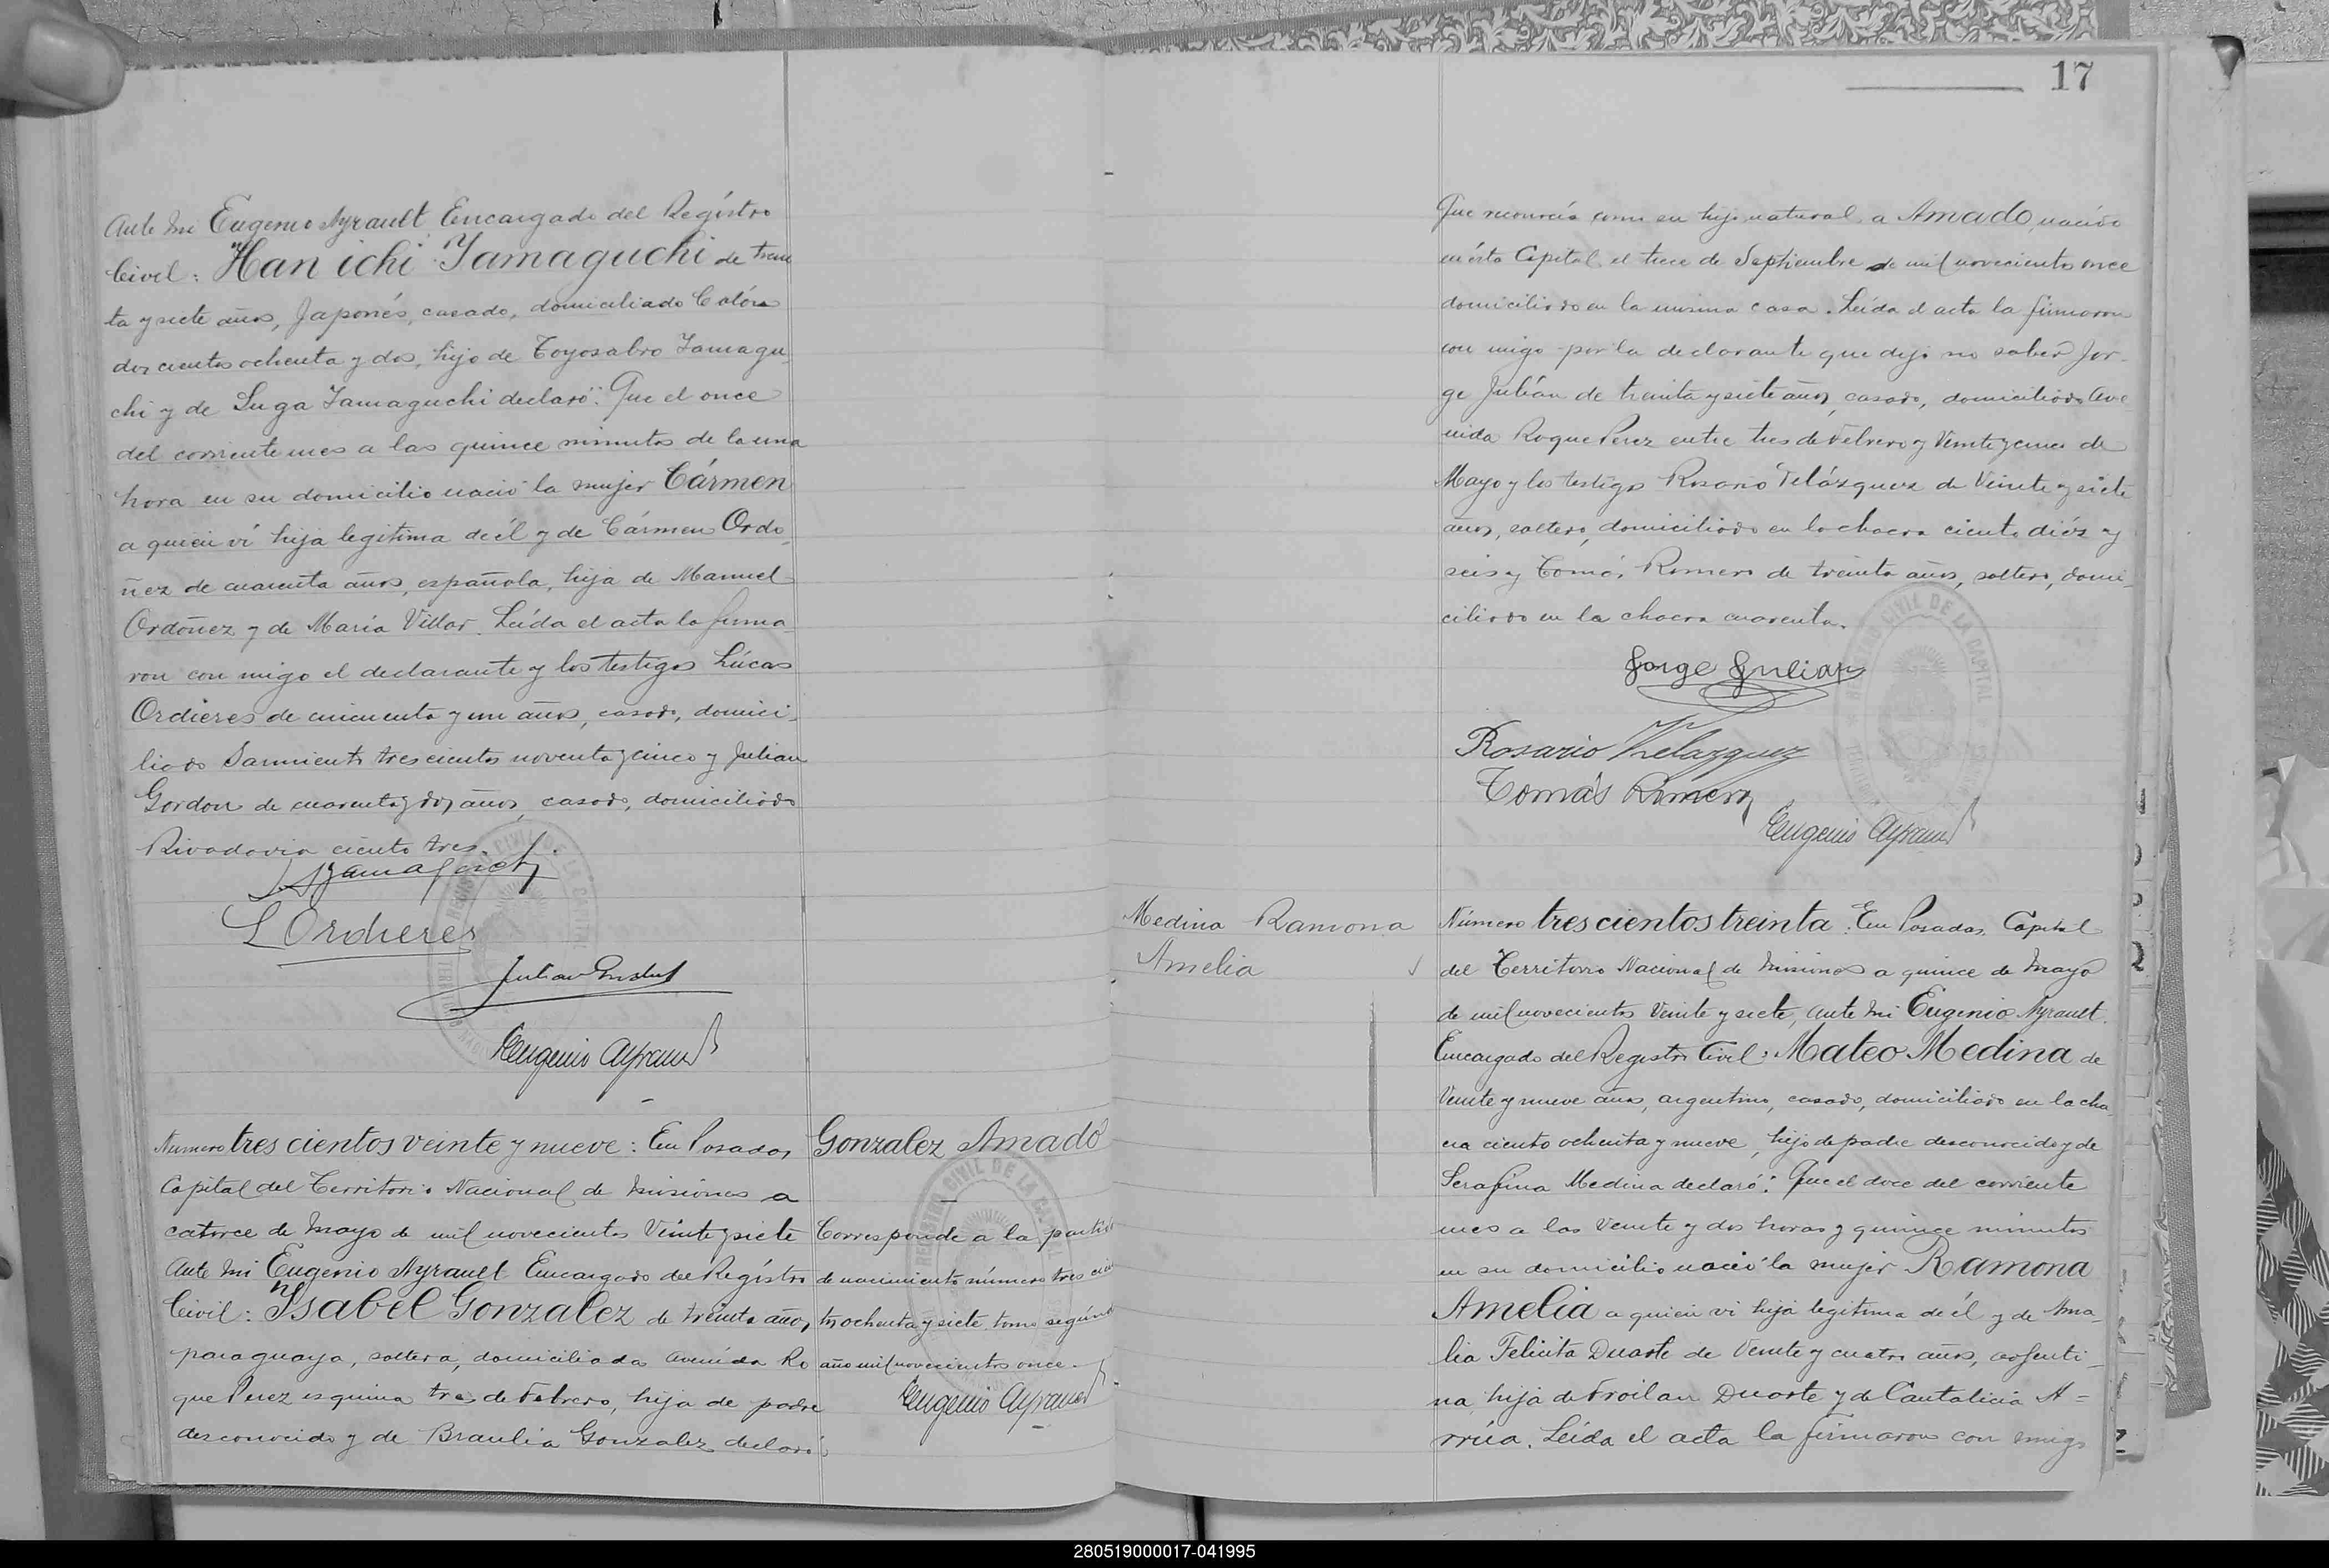 Ante mi Eugenio Ayrault Encargado del Registro
Civil: Han ichi Yamaguchi de trein
ta y siete años, Japonés, casado, domiciliado Colón
dos cientos ochenta y dos, hijo de Toyosabro Yamagu
chi y de Suga Yamaguchi declaró: Que el once
del corriente mes a las quince minutos de la una
hora en su domicilio nació la mujer Cármen
a quien ví hija legitima de él y de Cármen Ordo
ñez de cuarenta años, española, hija de Manuel
Ordoñez y de María Villar. Leída el acta la firma
ron con migo el declarante y los testigos Lúcas
Ordieres de cincuenta y un años, casado, domici
liado Sarmiento tres cientos noventa y cinco y Julian
Gordon de cuarenta y dos años, casado, domiciliado
Rivadavia ciento tres.
L Ordieres
Julian
Eugenio Ayrault
Numero tres cientos veinte y nueve: En Posadas
Capital del Territorio Nacional de Misiones a
catorce de Mayo de mil novecientos Veinte y siete
Ante mi Eugenio Ayrault Encargado del Registro
Civil: Ysabel Gonzalez de treinta años,
paraguaya, soltera, domiciliada Avenida Ro
que Perez esquina tres de Febrero, hija de padre
desconocido y de Braulia Gonzalez declaró:
Gonzalez Amado
Corresponde a la partid
de nacimiento número tres cien
tos ochenta y siete tomo segund
año mil novecientos once.
Eugenio Ayrault
17
Que reconocía como su hijo natural a Amado, nacido
en ésta Capital el trece de Septiembre de mil novecientos once
domiciliado en la misma casa. Leída el acta la firmaron
con migo por la declarante que dijo no saber Jor
ge Julián de treinta y siete años, casado, domiciliado Ave
nida Roque Perez entre tres de Febrero y Veinte y cinco de
Mayo y los testigos Rosario Velázquez de Veinte y siete
años, soltero, domiciliado en la chacra ciento diéz y
seis y Tomás Romero de treinta años, soltero, domi
ciliado en la chacra cuarenta.
Jorge Julian
Rosario Velazquez
Tomás Romero
Eugenio Ayrault
Medina Ramona
Amelia
Número tres cientos treinta: En Posadas, Capital
del Territorio Nacional de Misiones a quince de Mayo
de mil novecientos Veinte y siete, Ante mi Eugenio Ayrault
Encargado del Registro Civil: Mateo Medina de
Veinte y nueve años, argentino, casado, domiciliado en la cha
cra ciento ochenta y nueve, hijo de padre desconocido y de
Serafina Medina declaró: Que el doce del corriente
mes a las veinte y dos horas y quince minutos
en su domicilio nació la mujer Ramona
Amelia a quien vi hija legitima de él y de Ama
lia Felicita Duarte de Veinte y cuatro años, argenti
na, hija de Froilan Duarte y de Cantalicia A=
rrúa. Leída el acta la firmaron con migo
280519000017-041995